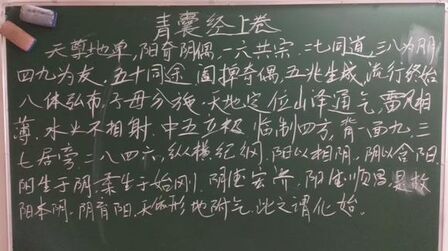 青囊经上卷
天尊地卑，阳奇阴偶，一六共宗，二七同道，三八为朋
四九为友，五十同途，阖辟奇偶，五兆生成，流行终始
八体弘布，子母分施，天地定位，山泽通气，雷风相
薄，水火不相射，中五立极，临制四方，背一面九，三
七居旁，二八四六，纵横纪纲，阳以相阴，阴以含阳
阳生于阴，柔生于刚，阴德宏济，阳德顺昌，是故
阳本阴，阴育阳，天依形，地附气，此之谓化始。